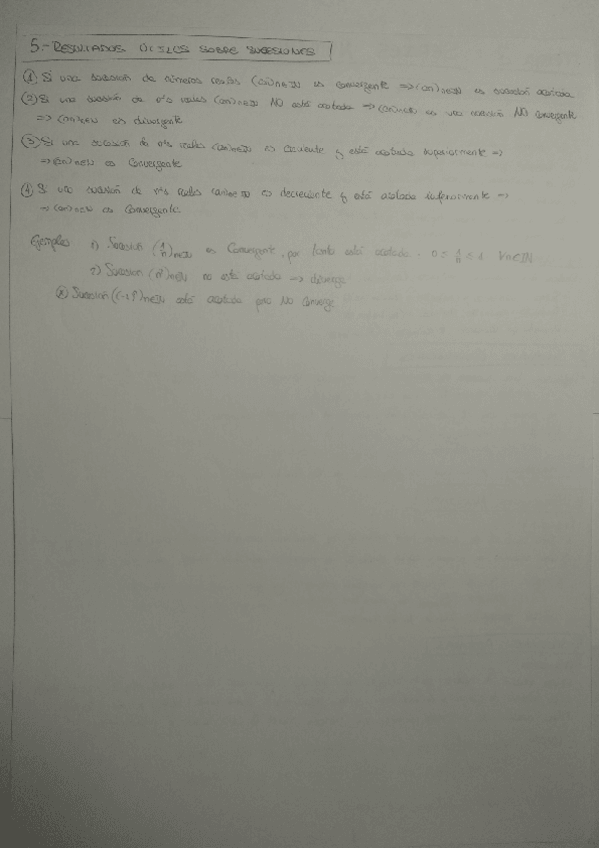 5.- RESULTADOS ÚTILES SOBRE SUCESIONES
① Si una sucesión de números reales (an)n∈IN es convergente ⇒ (an)n∈IN es sucesión acotada
② Si una sucesión de nºs reales (an)n∈IN NO está acotada ⇒ (an)n∈IN es una sucesión NO convergente
⇒ (an)n∈IN es divergente
③ Si una sucesión de nºs reales (an)n∈IN es creciente y está acotada superiormente ⇒
⇒ (an)n∈IN es convergente
④ Si una sucesión de nºs reales (an)n∈IN es decreciente y está acotada inferiormente ⇒
⇒ (an)n∈IN es convergente.
Ejemplos 1) Sucesión (1/n)n∈IN es convergente, por tanto está acotada. 1/n ≤ 1 ∀n∈IN
2) Sucesión n∈IN no está acotada ⇒ diverge
Sucesión ((-1)ⁿ)n∈IN está acotada pero NO converge